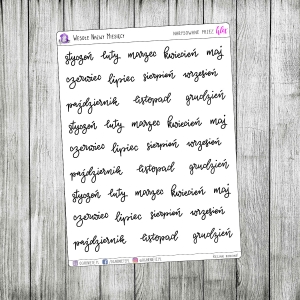 Wesołe Nazwy Miesięcy
styczeń luty marzec kwiecień maj
czerwiec lipiec sierpień wrzesień
październik listopad grudzień
styczeń luty marzec kwiecień maj
czerwiec lipiec sierpień wrzesień
październik listopad grudzień
styczeń luty marzec kwiecień maj
czerwiec lipiec sierpień wrzesień
październik listopad grudzień